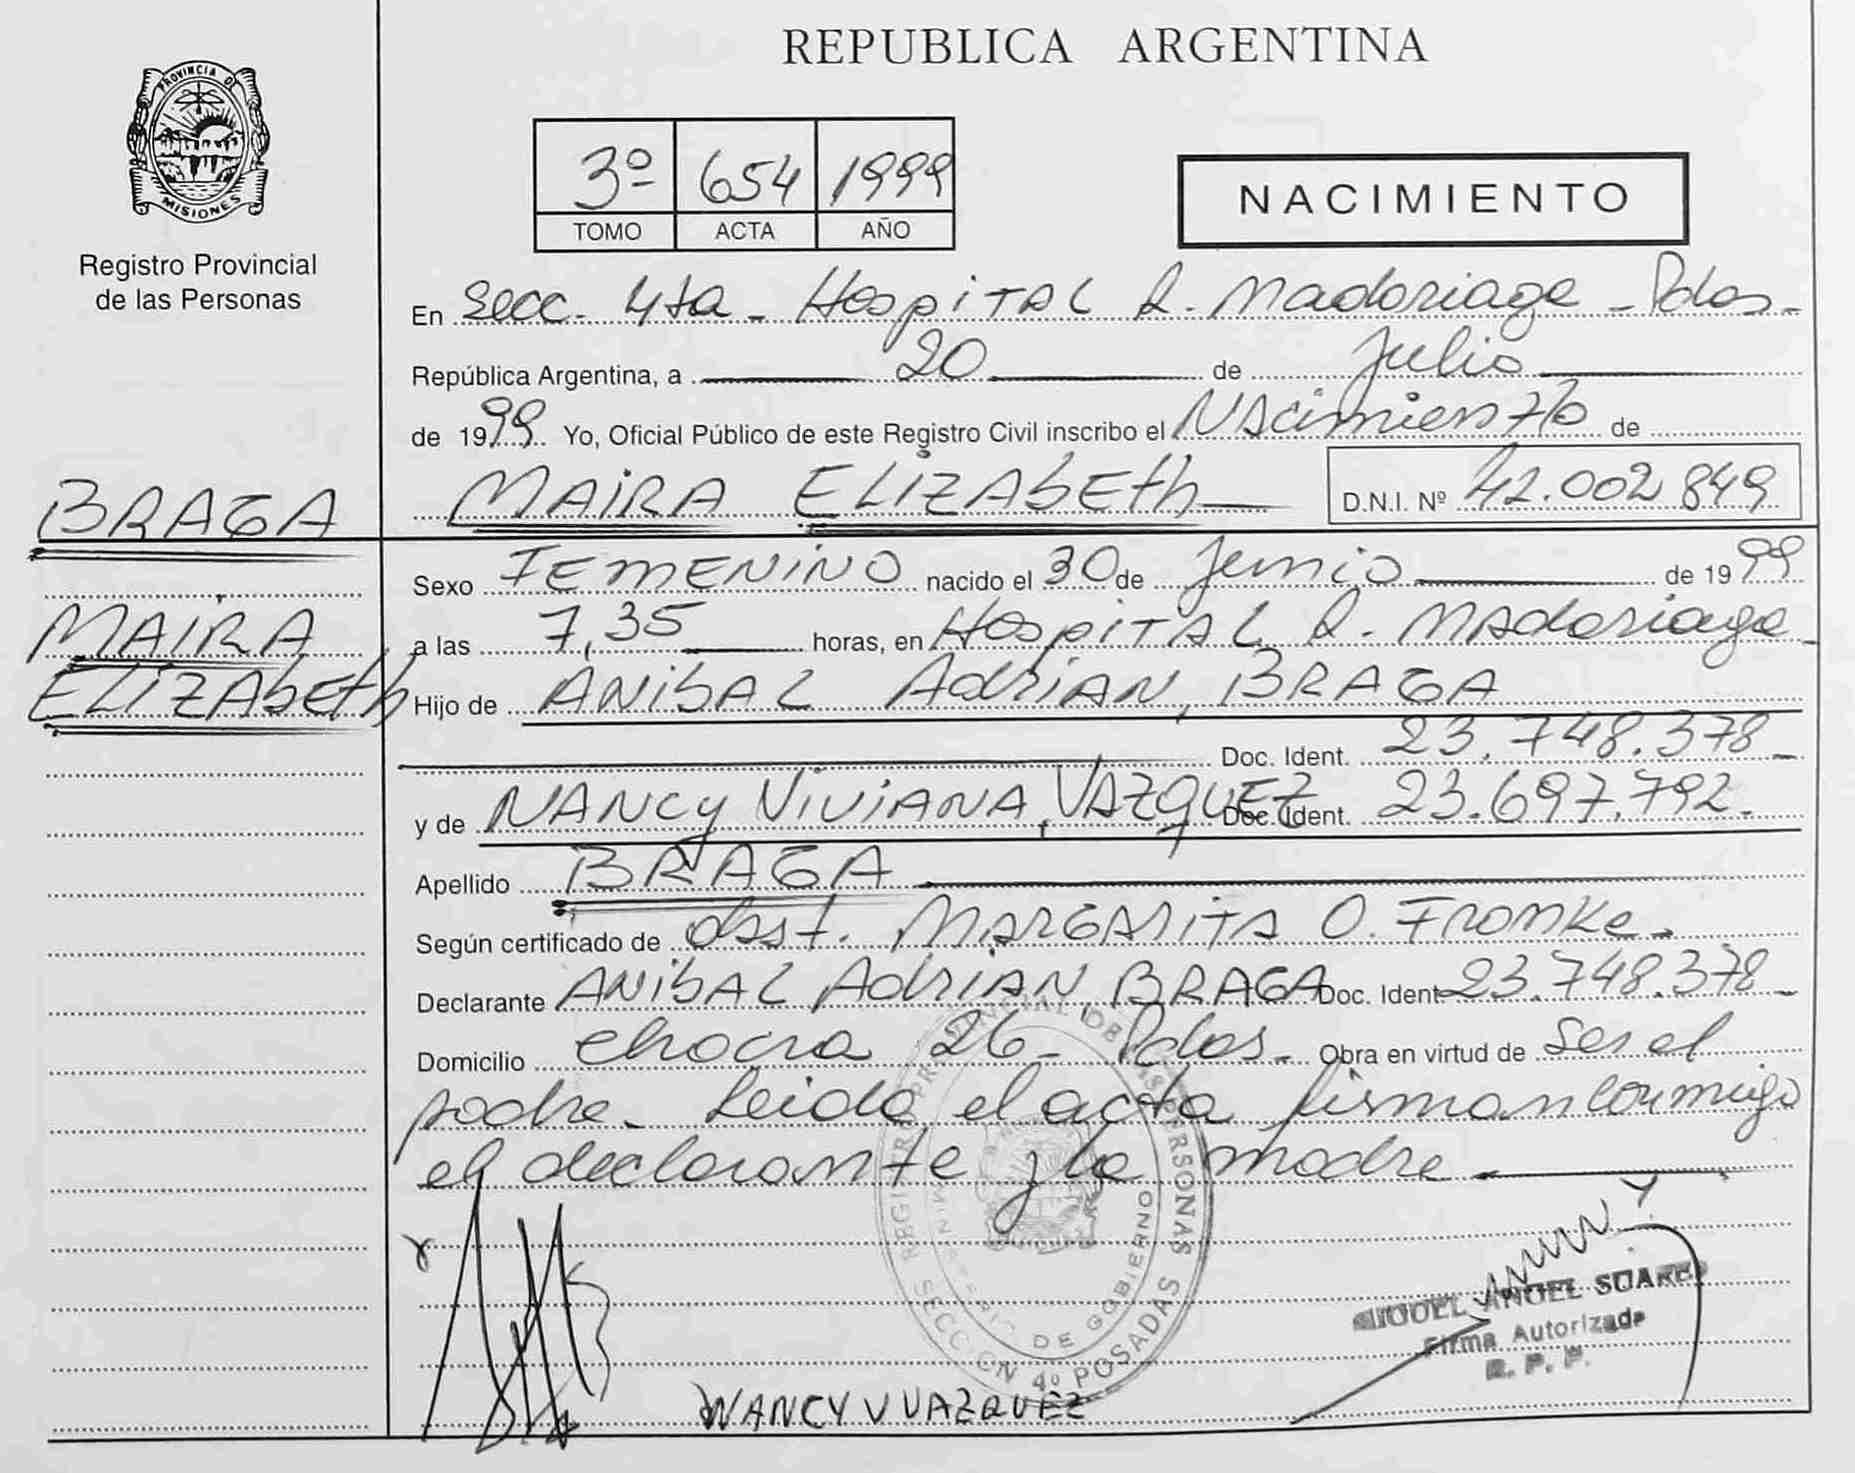 REPUBLICA ARGENTINA
PROVINCIA DE
MISIONES
Registro Provincial
de las Personas
3º 654 1999
TOMO ACTA AÑO
NACIMIENTO
En Secc. 4ta - Hospital R. Madariaga - Pdas.
República Argentina, a 20 de Julio
de 1999 Yo, Oficial Público de este Registro Civil inscribo el Nacimiento de
MAIRA ELIZAbEth D.N.I. Nº 42.002.849
BRAGA
MAIRA
ELIZAbEth
Sexo FEMENINO nacido el 30 de Junio de 1999
a las 7,35 horas, en Hospital R. Madariaga
Hijo de ANIbAL AdriAN, BRAGA
Doc. Ident. 23.748.378
y de NANCy ViViANA, VAZqUEZ Doc. Ident. 23.697.792.
Apellido BRAGA
Según certificado de Obst. MARGARITA O. Fromke.
Declarante ANIbAL AdriAN, BRAGA Doc. Ident 23.748.378
Domicilio chacra 26 - Pdas. Obra en virtud de Ser el
padre. Leida el acta firman conmigo
el declarante y la madre
REGISTRO PROVINCIAL DE LAS PERSONAS
MINISTERIO DE GOBIERNO
SECCION 4º POSADAS
NANCY V VAZQUEZ
MIGUEL ANGEL SUAREZ
Firma Autorizada
R. P. P.